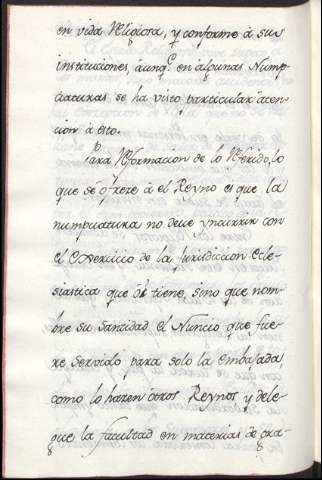 en vida Religiosa, y conforme à sus
institutciones, aunqe en algunas Nump-
ciaturas se ha visto particular aten-
cion à esto.
Para Reformacion de lo Referido, lo
que se ofreze à el Reyno es que la
numpciatura no deue yncurrir con
el Exercicio de la Jurisdicion Ecle-
siastica que oy tiene, sino que nom-
bre su Santidad el Nuncio que fue-
re servido para solo la embajada,
como lo hazen otros Reynos y dele-
gue la facultad en materias de gra-